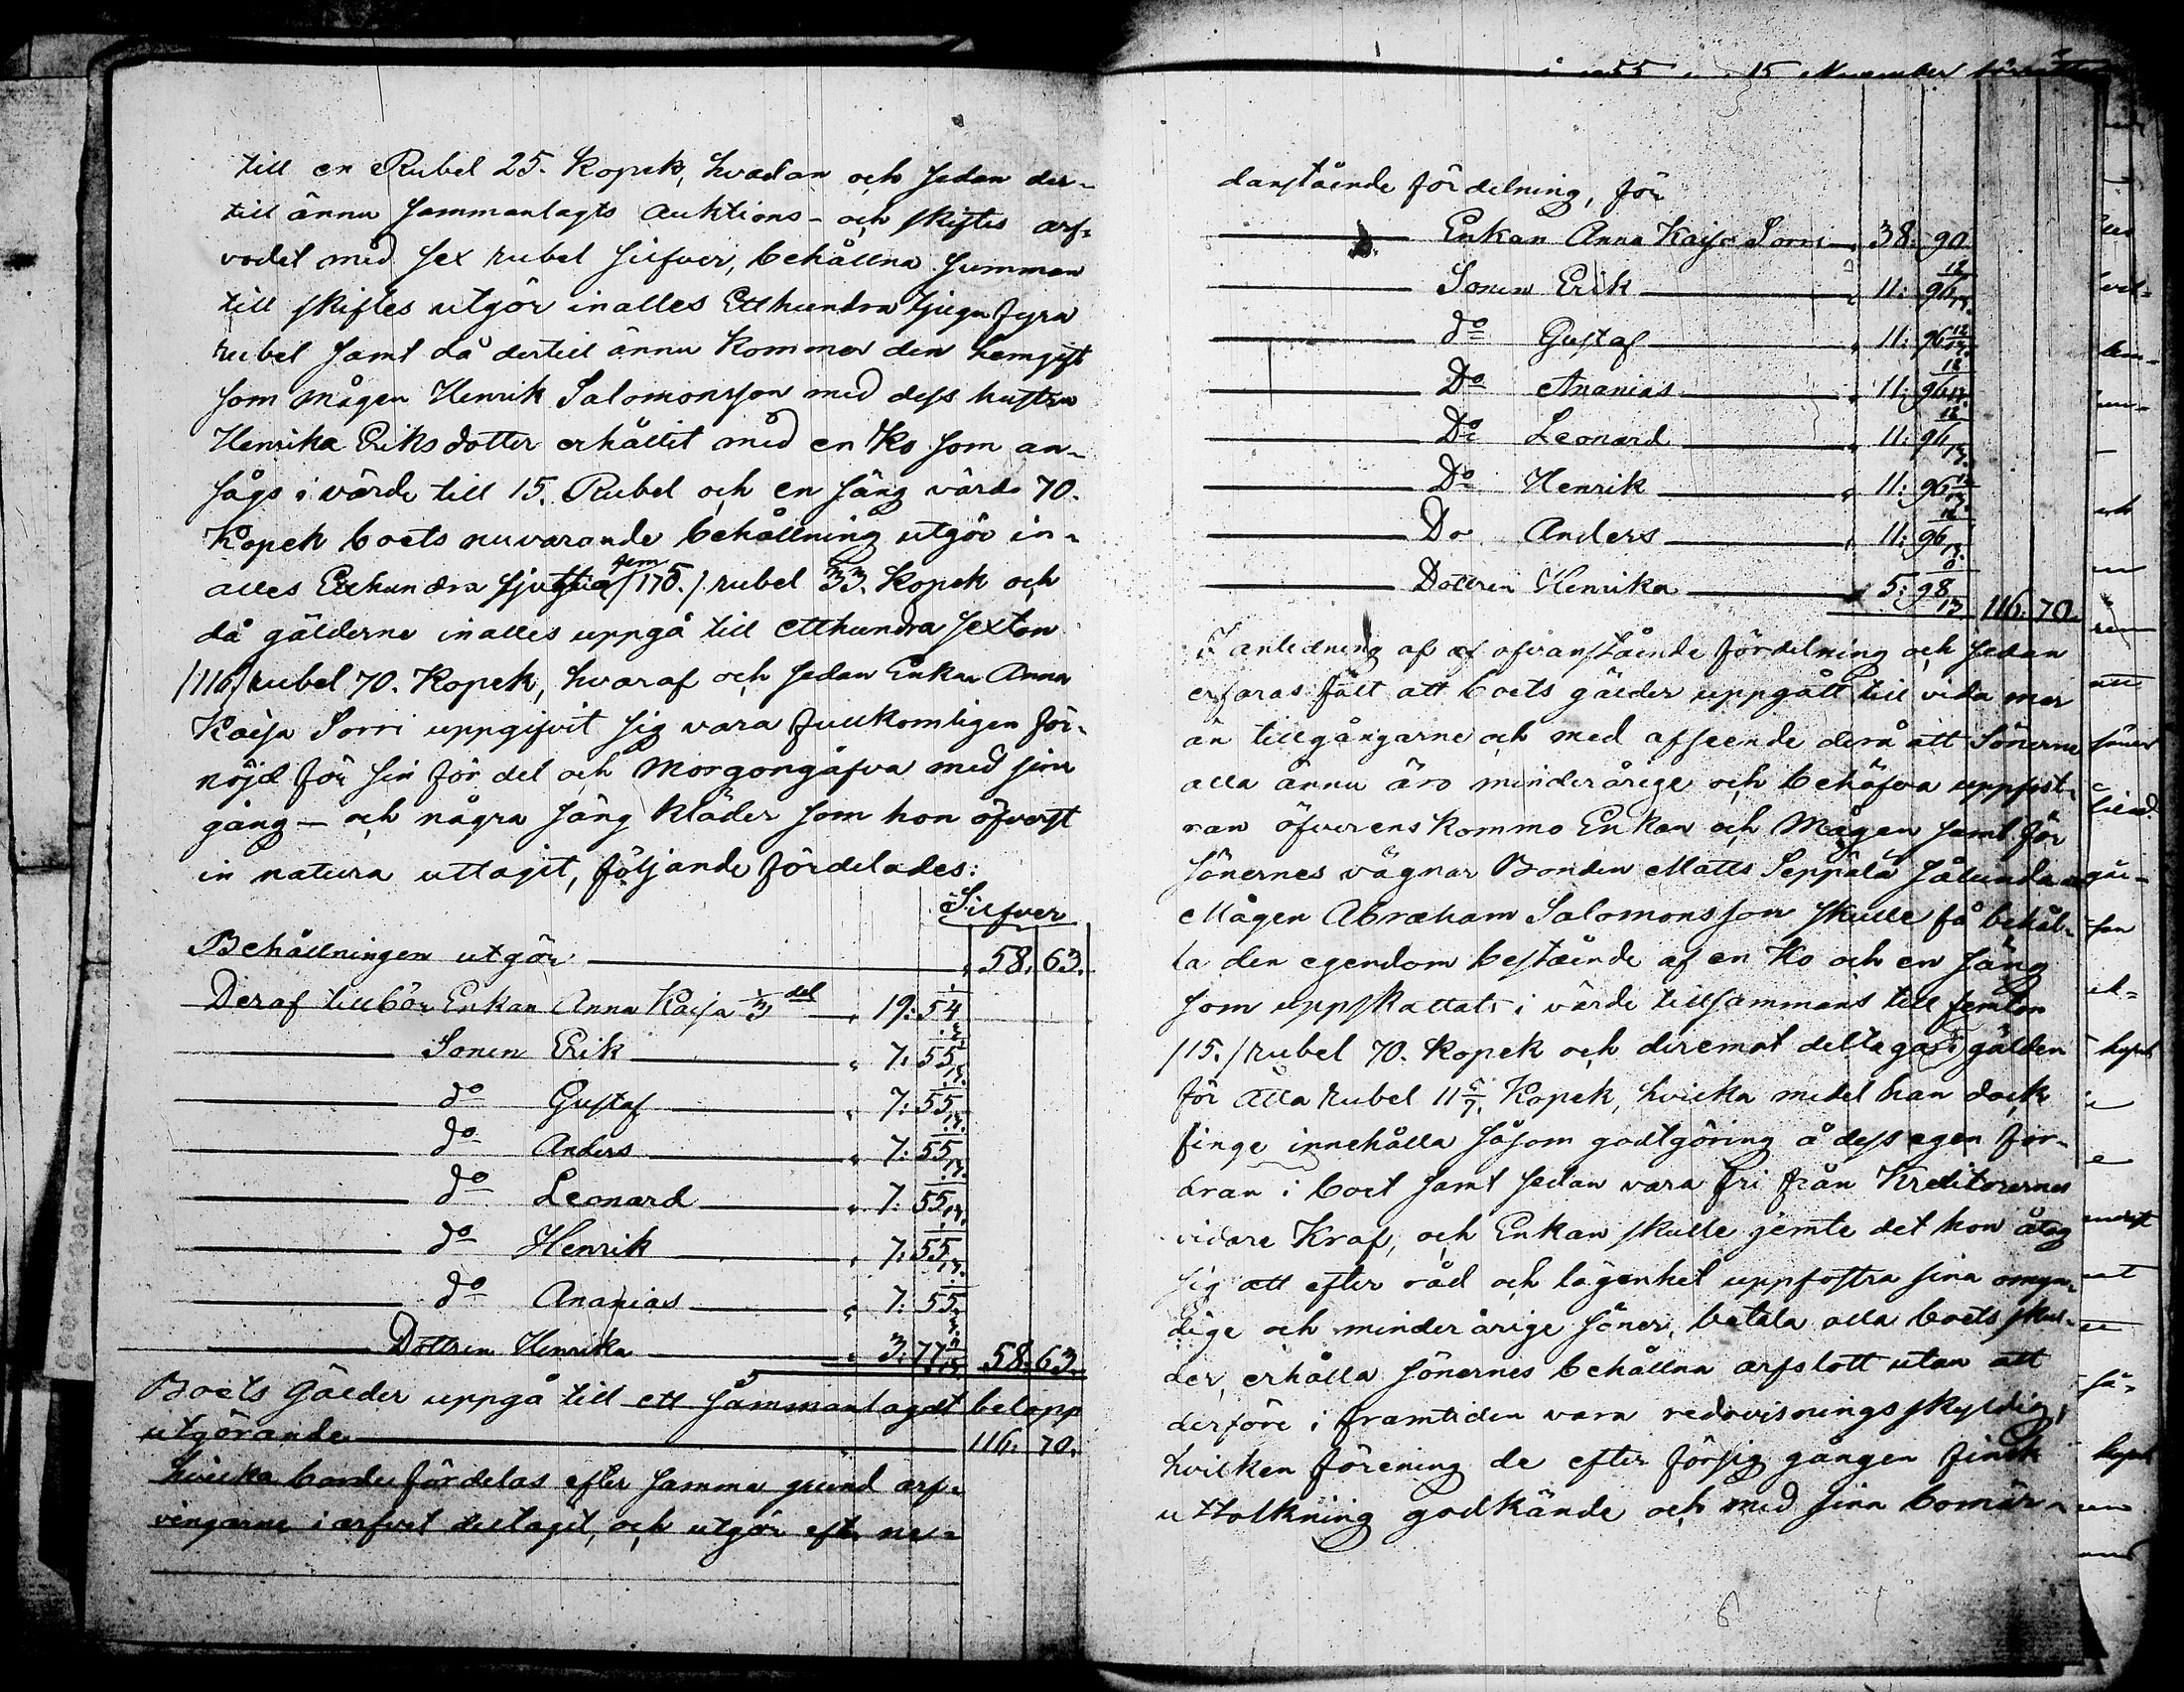 till en Rubel 25. Kopek, hvadan och sedan der-
till ännu sammanlagts Auktions- och skiftes arf-
vodet med sex rubel silfver, behållna summan
till skiftes utgör inalles Etthundra tjugu fyra
rubel samt då dertill ännu kommer den hemgift
som mågen Henrik Salomonsson med dess hustru
Henrika Eriksdotter erhållit med en Ko som an-
sågs i värde till 15. Rubel och en säng värde 70.
Kopek boets nuvarande behållning utgör in-
alles Etthundra sjuttio fem /175./ rubel 33. Kopek och
då gälderne inalles uppgå till etthundra sexton
/116/ rubel 70. Kopek, hvaraf och sedan Enkan Anna
Kaisa Sorri uppgifvit sig vara fullkomligen för-
nöjd för sin fördel och Morgongåfva med sin
gång- och några säng kläder som hon öfverst
in natura uttagit, följande fördelades:
Silfver
Behållningen utgör 58. 63.
Deraf tillbör Enkan Anna Kaisa 1/3 del " 19: 54 1/3
Sonen Erik " 7: 55 /13.
do Gustaf " 7: 55 /13.
do Anders " 7: 55 /13.
do Leonard " 7: 55 /13.
do Henrik " 7: 55 /13.
do Ananias " 7: 55
Dottren Henrika " 3: 77 /13 58. 63.
Boets Gälder uppgå till ett sammanlagdt belopp
utgörande " 116. 70.
hvilka borde fördelas efter samma grund arf-
vingarne i arfvet deltagit, och utgör efter ne-
1855 15 November
danstående fördelning, för
Enkan Anna Kaisa Sorri " 38: 90
Sonen Erik " 11: 96 12/13.
do Gustaf " 11: 96 12/13.
Do Ananias " 11: 96 12/13.
Do Leonard " 11: 96 12/13.
Do Henrik " 11: 96 12/13
Do Anders " 11: 96 12/13.
Dottren Henrika " 5: 98 /13 116. 70.
I anledning af af ofvanstående fördelning och sedan
erfaras fått att boets gälder uppgått till vida mer
än tillgångarne och med afseende derå att Sönerne
alla ännu äro minderårige och behöfva uppfost-
ran öfverenskommo Enkan och Mågen samt för
Sönernes vägnar Bonden Matts Seppälä sålunda att
Mågen Abraham Salomonsson skulle få behål-
la den egendom bestående af en Ko och en säng
som uppskattats i värde tillsammans till femton
/15./ rubel 70. Kopek och deremot deltaga i gälden
för Åtta rubel 11 /7. Kopek, hvilka medel han dock
finge innehålla såsom godtgöring å dess egen for-
dran i boet samt sedan vara fri från Kreditorernes
vidare Kraf, och Enkan skulle jemte det hon åtog
sig att efter råd och lägenhet uppfostra sina omyn-
dige och minderårige söner, betala alla boets skul-
der, erhålla sönernes behållna arfslott utan att
derföre i framtiden vara redovisningsskyldig,
hvilken förening de efter försig gången finsk
uttolkning godkände och med sina bomär-